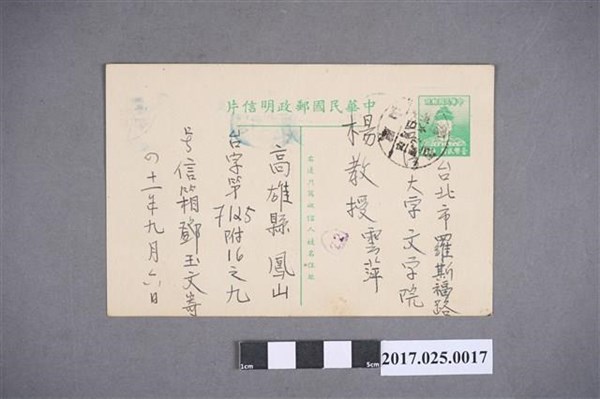 中華民國郵政明信片
台北市羅斯福路
大学文学院
楊教授雲萍
高雄縣鳳山
台字第7125附16之九
号信箱鄧玉文寄
四十一年九月六日
2017.025.0017
1cm
5cm